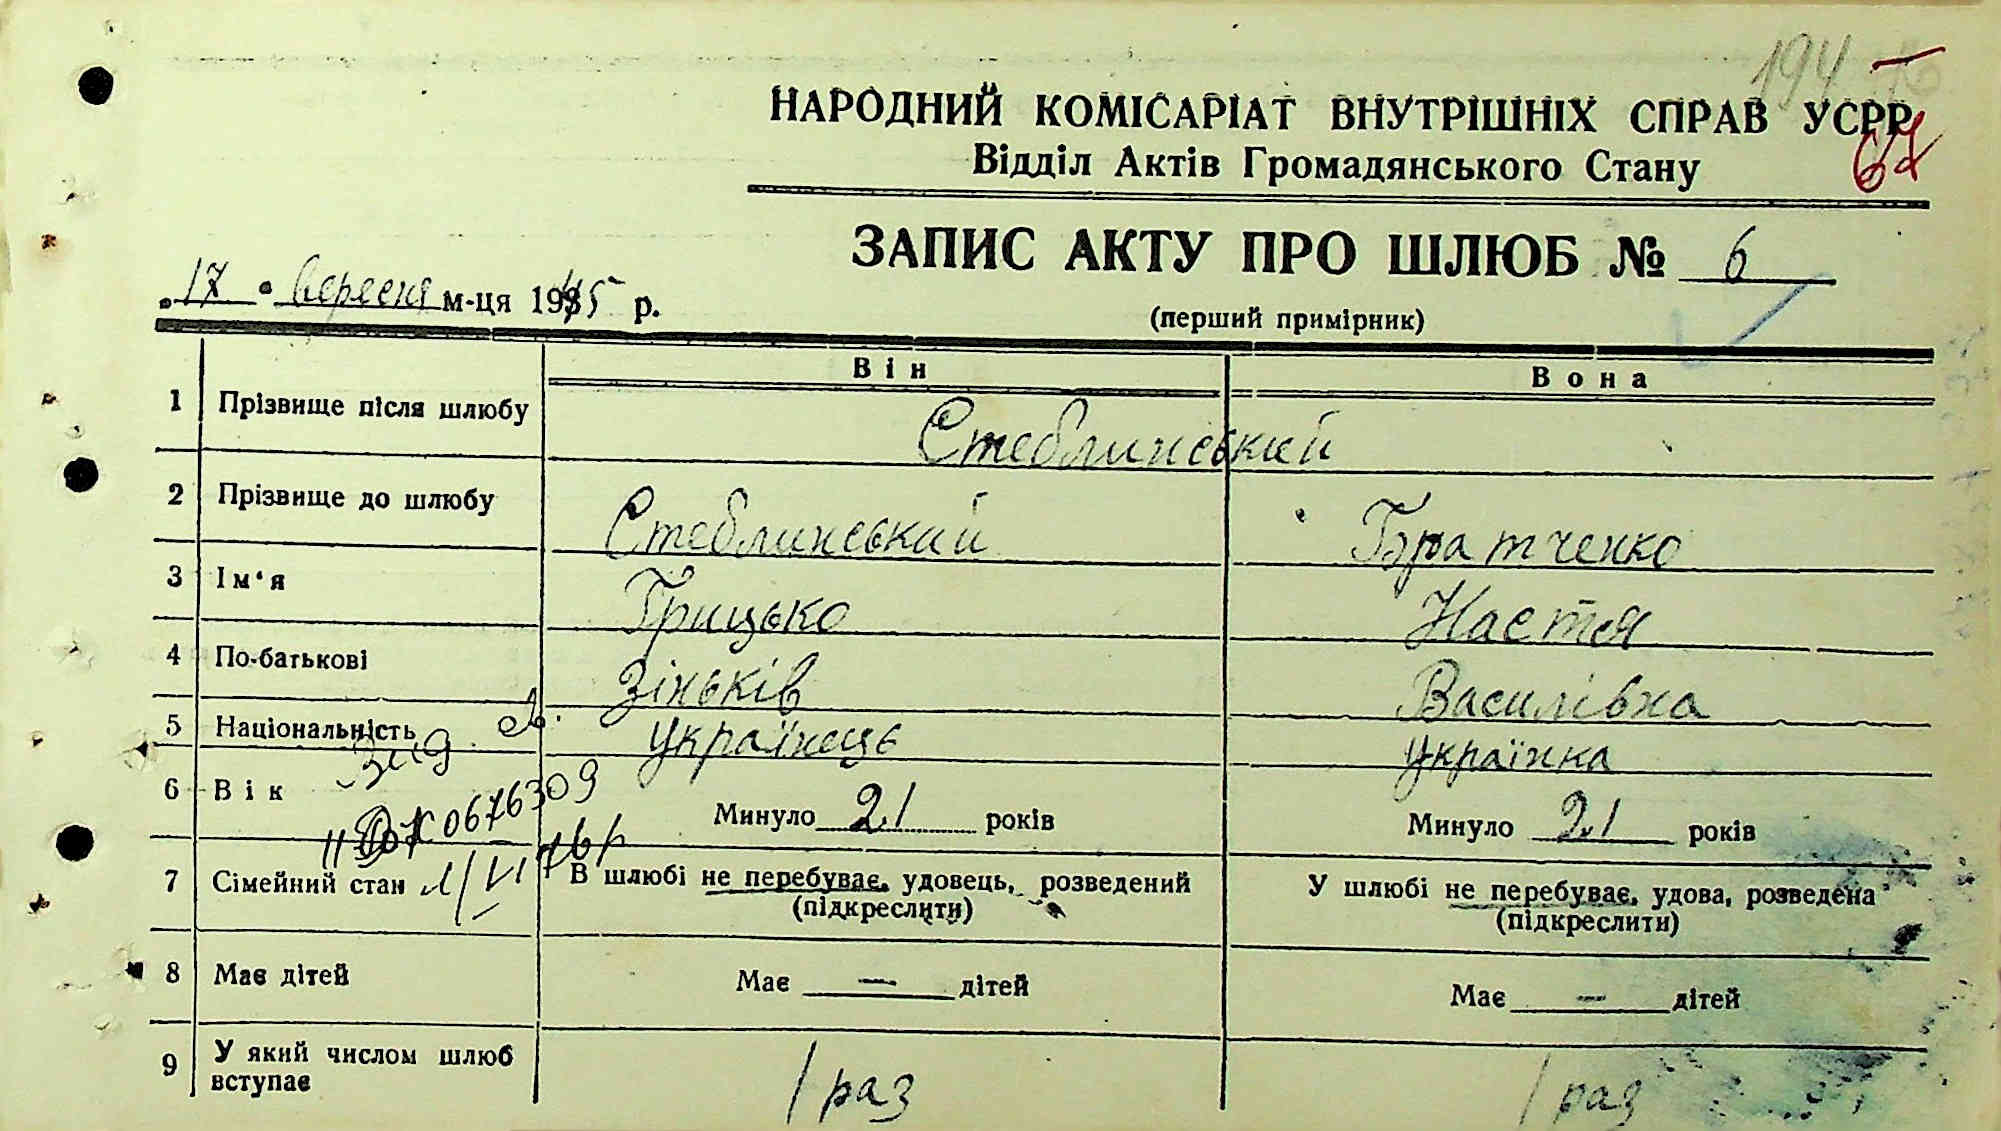 194
НАРОДНИЙ КОМІСАРІАТ ВНУТРІШНІХ СПРАВ УСРР
67
Відділ Актів Громадянського Стану
ЗАПИС АКТУ ПРО ШЛЮБ № 6
(перший примірник)
17 вересня м-ця 1945 р.
Він Вона
1 Прізвище після шлюбу Стеблинський
2 Прізвище до шлюбу Стеблинський Братченко
3 Ім'я Грицько Настя
4 По-батькові Зіньків Василівна
5 Національність українець українка
6 Вік Минуло 21 років Минуло 21 років
ЖК 0676309
7 Сімейний стан В шлюбі не перебуває, удовець, розведений У шлюбі не перебуває, удова, розведена
(підкреслити) (підкреслити)
8 Має дітей Має — дітей Має — дітей
9 У який числом шлюб вступає 1 раз 1 раз